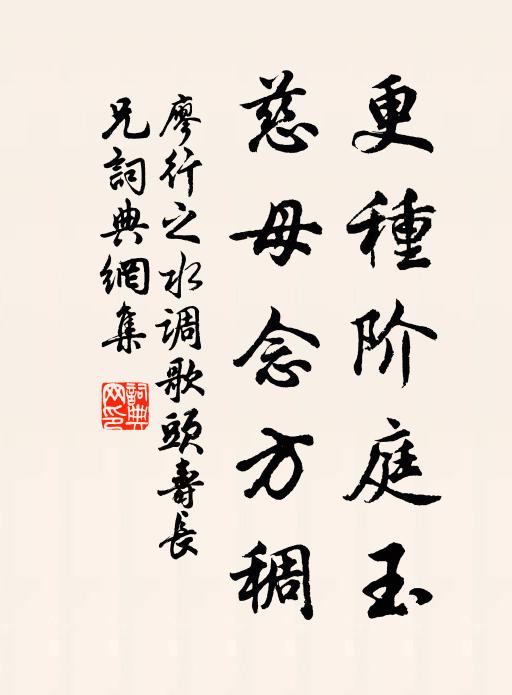 更種阶庭玉
慈母念方稠
廖行之水调歌頭壽長
兄詞典網集
詞典
网印